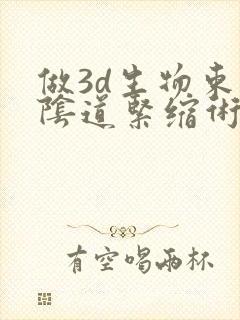 做3d生物束
陰道緊缩術
有空喝兩杯